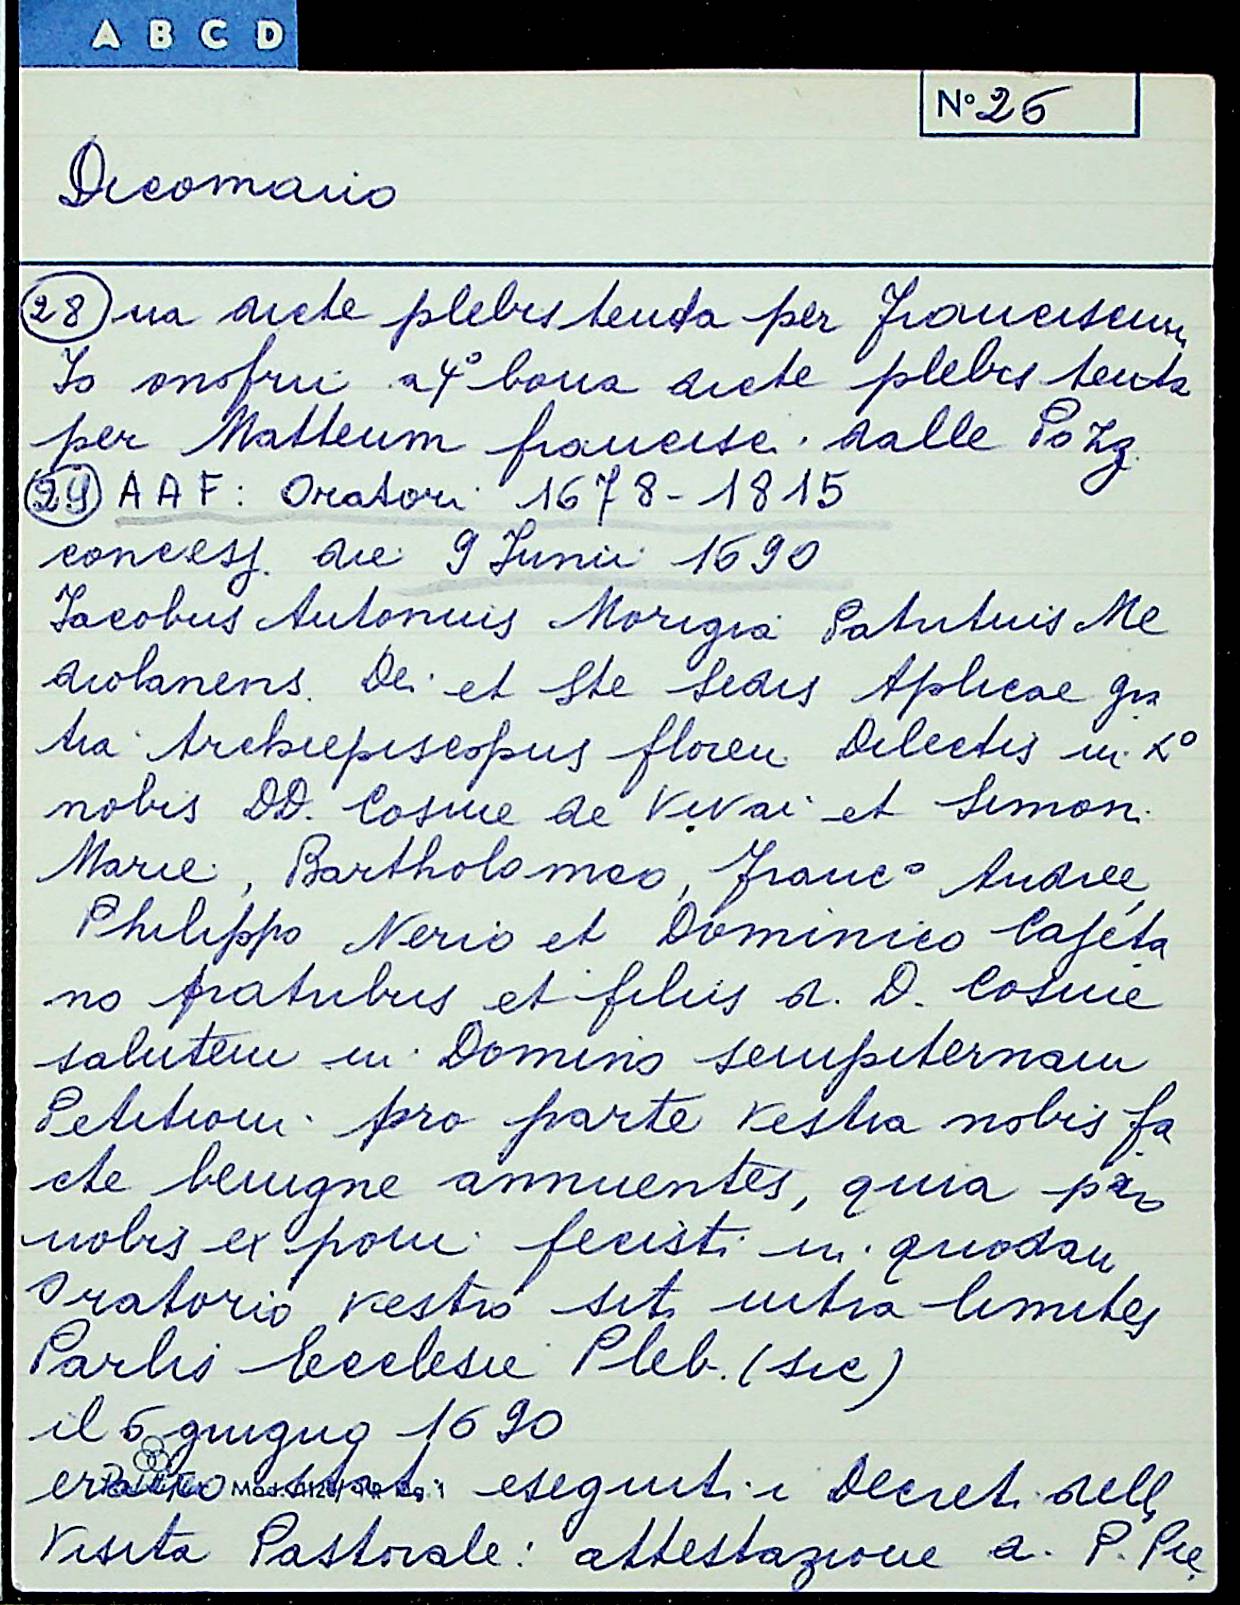 A B C D
N° 26
Dicomano
28 na dicte plebis tenda per Franciscum
Io onofrii a 4° bona dicte plebis tenta
per Matteum francisc. dalle Pozz.
29 A A F: Oratori 1678-1815
concess. die 9 Junii 1690
Jacobus Antonius Morigia Patritius Me
diolanens. Dei et Ste Sedis Aplicae gra
tia Archiepiscopus floren. Dilectis in X°
nobis DD. Cosme de Vivai et Simon.
Marie, Bartholomeo, Franc° Andree,
Philippo Nerio et Dominico Cajeta
no fratribus et filiis d. D. Cosme
salutem in Domino sempiternam
Petition. pro parte vestra nobis fa
cte benigne annuentes, quia
nobis exponi fecisti in quodam
Oratorio vestro sit. intra limites
Parlis Ecclesie Pleb. (sic)
il 6 giugno 1690
erano stati eseguiti i Decreti dell
Visita Pastorale: attestazione d. P. Pie